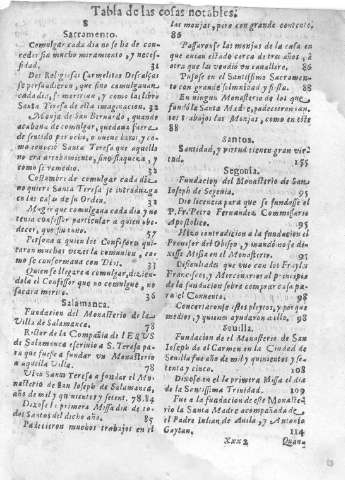 Tabla de las cosas notables.
S
Sacramento.
Comulgar cada dia no se ha de con-
ceder sin mucho miramiento, y necesi-
sidad. 31
Dos Religiosas Carmelitas Descalças
se persuadieron, que sino comulgauan
cada dia, se morirían, y como las libró
Santa Teresa de esta imaginacion. 32
Monja de San Bernardo, quando
acabaua de comulgar, quedaua fuera
de sentido por ocho, o nueue horas, y co-
mo conoció Santa Teresa que aquello
no era arrobamiento, sino flaqueza, y
como se remedio. 32
Costumbre de comulgar cada dia
no quiere Santa Teresa se introduzga
en las casas de su Orden. 32
Muger que comulgaua cada dia, y no
tenia confessor particular a quien obe-
decer, que fin tuuo. 57
Persona a quien los Confessores quita-
ron muchas vezes la comunion, como
se conformaua con Dios. 33
Quien se llegare a comulgar, dizien-
dola el Confessor que no comulgue, no
sacará merito. 36
Salamanca.
Fundacion del Monasterio de la
Villa de Salamanca. 78
Retor de la Compañia de IESVS
de Salamanca escriuio a S. Teresa pa-
ra que fuesse a fundar vn Monasterio
a aquella Villa. 78
Vino Santa Teresa a fundar el Mo-
nasterio de San Ioseph de Salamanca,
año de mil y quinientos y setent. 78. 84
Dixose la primera Missa dia de to-
dos Santos del dicho año. 85
Padecieron muchos trabajos en el
las monjas, pero con grande contento.
86
Passaronse las monjas de la casa en
que auian estado cerca de tres años, à
otra que las vendio vn cauallero. 86
Pusose en el Santissimo Sacramen-
to con grande solemnidad y fiesta. 88
En ningun Monasterio de los que
fundó la Santa Madre, padecieron tan-
tos trabajos las Monjas, como en este
88
Santos.
Santidad, y virtud tienen gran vir-
tud. 155
Segouia.
Fundacion del Monasterio de San
Ioseph de Segouia. 95
Dio licencia para que se fundasse el
P. Fr. Pedro Fernandez Commissario
Apostolico. 95
Hizo contradicion a la fundacion el
Prouisor del Obispo, y mandò no se di-
xesse Missa en el Monasterio. 95
Dissensiones que vuo con los Frayles
Franciscos, y Mercenarios al principio
de la fundacion sobre comprar casa pa-
ra el Conuento. 98
Concertaronse estos pleytos, y por que
medios, y quienes ayudaron a ello. 98
Seuilla.
Fundacion de el Monasterio de San
Ioseph de el Carmen en la Ciudad de
Seuilla fue año de mil y quinientos y se-
tenta y cinco. 108
Dixose en el la primera Missa el dia
de la Santissima Trinidad. 109
Fue a la fundacion de este Monaste-
rio la Santa Madre acompañada de
el Padre Iulian de Auila, y Antonio
Gaytan. 114
Xxx2 Quan-